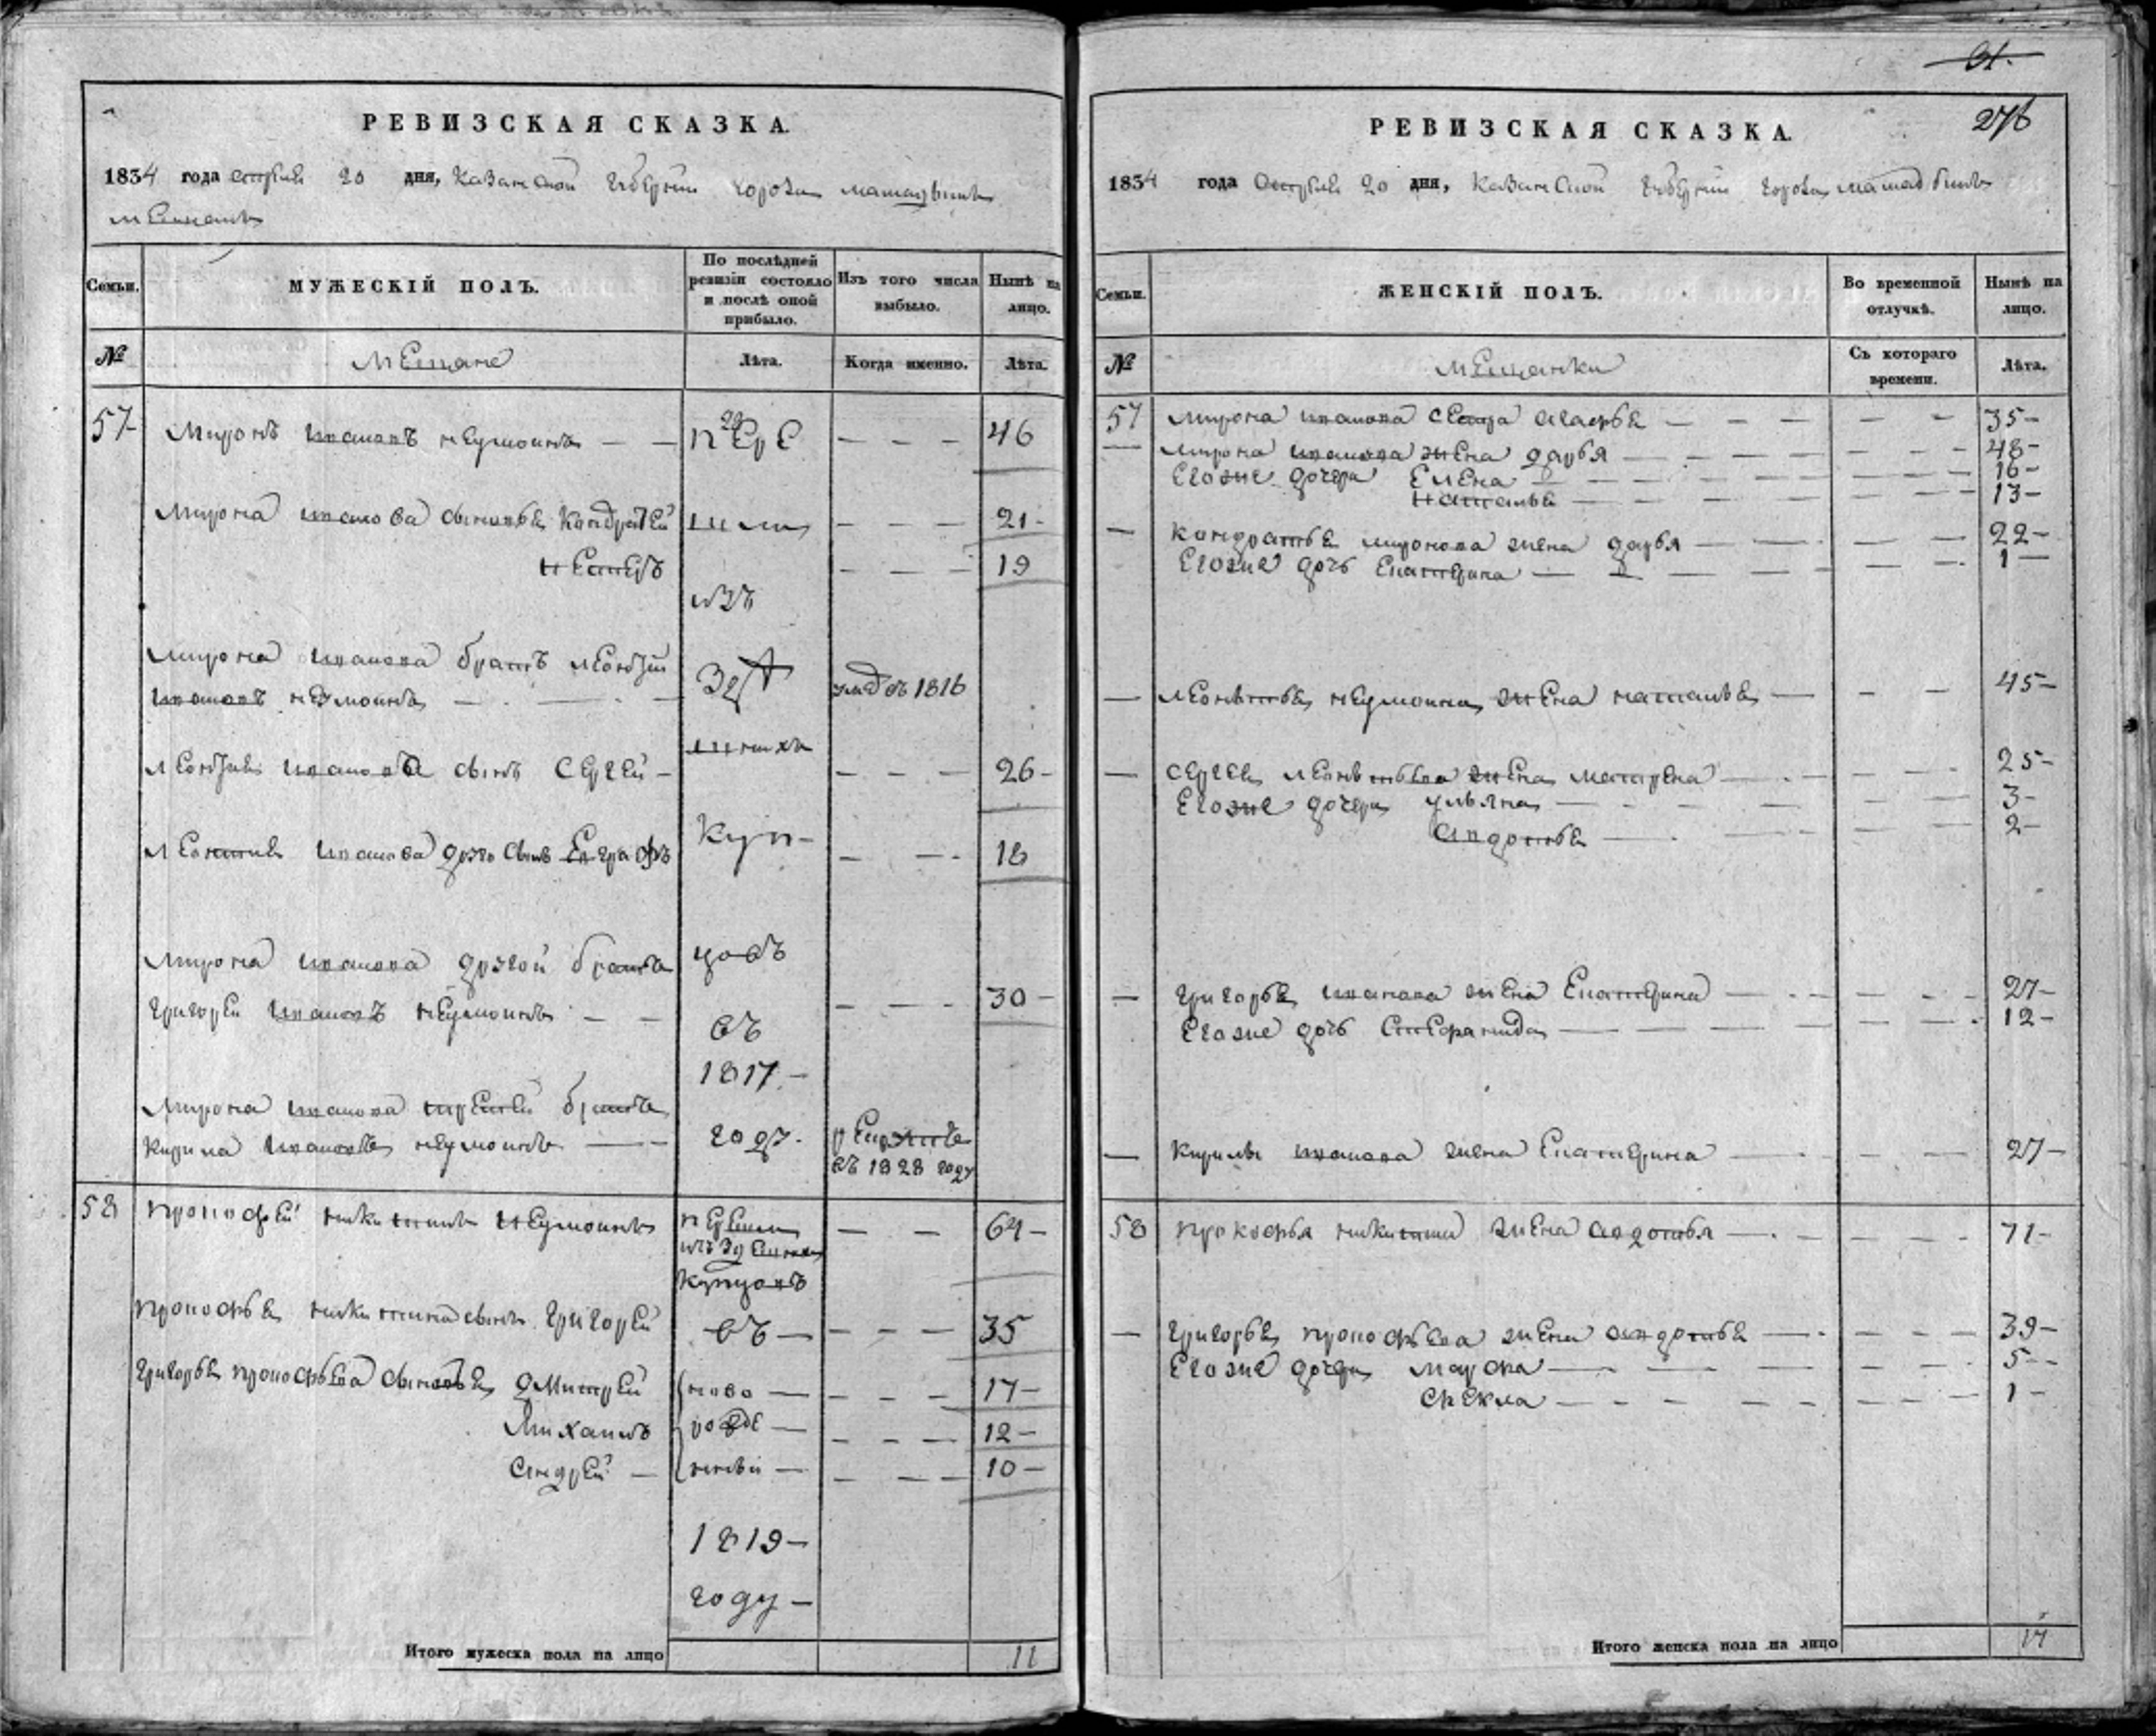 РЕВИЗСКАЯ СКАЗКА.
1834 года октября 20 дня, Казанской губернии города
мещанъ
Семьи.
МУЖЕСКІЙ ПОЛЪ.
По послѣдней ревизіи состояло и послѣ оной прибыло.
Изъ того числа выбыло.
Нынѣ на лицо.
№
Мещане
Лѣта.
Когда именно.
Лѣта.
57
Миронъ Ивановъ Неумоинъ — —
пере
— — —
46
Мирона Иванова сыновья Кондратей
шли
— — —
21-
Нестеръ
— — —
19
изъ
Мирона Иванова братъ Леонтий
Ивановъ Неумоинъ — — —
зд
въ 1816
Леонтия Иванова сынъ Сергей —
шнихъ
— — —
26-
Леонтия Иванова другой сынъ Евграфъ
куп-
— — -
18
Мирона Иванова другой братъ
цовъ
Григорей Ивановъ Неумоинъ — —
— — —
30 -
въ
1817.-
Мирона Иванова третей братъ
Кирила Ивановъ Неумоинъ — —
году.
въ 1828 году
58
Прокофей Никитинъ Неумоинъ
перешли
изъ здешнихъ
купцовъ
— —
64-
Прокофья Никитина сынъ Григорей
въ —
— — —
35
Григорья Прокофьева сыновья Дмитрей
ново —
— — —
17-
Михаилъ
рожде —
— — —
12-
Андрей —
нныи —
— — —
10-
1819-
году -
Итого мужеска пола на лицо
11
31.
276
РЕВИЗСКАЯ СКАЗКА.
1834 года октября 20 дня, Казанской губернии города
Семьи.
ЖЕНСКІЙ ПОЛЪ.
Во временной отлучкѣ.
Нынѣ на лицо.
№
Мещанки
Съ котораго времени.
Лѣта.
57
Мирона Иванова сестра Агафья — — — —
35-
Мирона Иванова жена Дарья — — — —
48-
Егоже дочери Елена — — — —
16-
Наталья — — — —
13-
— Кондратья Миронова жена Дарья — — —
22-
Егоже дочь Екатерина — — — —
1 —
— Леонтья Неумоина жена Наталья — — —
45-
— Сергея Леонтьева жена Матрена — — —
25-
Егоже дочери Ульяна — — — —
3-
Авдотья — — —
2-
— Григорья Иванова жена Екатерина — — —
27-
Егоже дочь Стефанида — — — —
12-
— Кирилы Иванова жена Екатерина — — —
27-
58
Прокофья Никитина жена Авдотья — — —
71-
— Григорья Прокофьева жена Авдотья — — —
39-
Егоже дочери Марфа — — — —
5--
Фекла — — — —
1 -
Итого женска пола на лицо
17